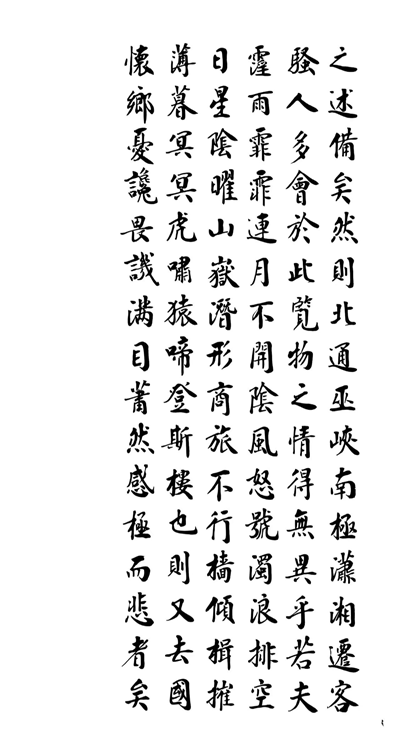 之述備矣然則北通巫峽南極瀟湘遷客
騷人多會於此覽物之情得無異乎若夫
霪雨霏霏連月不開陰風怒號濁浪排空
日星陰曜山嶽潛形商旅不行檣傾楫摧
薄暮冥冥虎嘯猿啼登斯樓也則又去國
懷鄉憂讒畏譏滿目蕭然感極而悲者矣